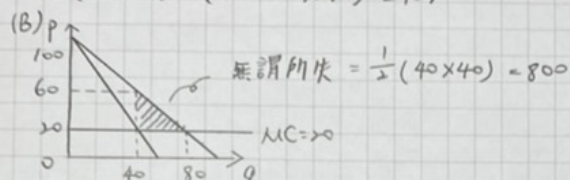 (B) P
100
60
20
0
40 80 q
MC=20
無謂所失 = 1/2 (40×40) = 800